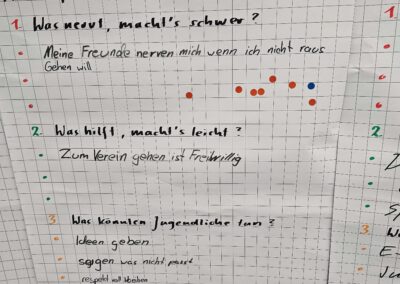 1. Was nervt, macht's schwer?
Meine Freunde nerven mich wenn ich nicht raus
Gehen will
2. Was hilft, macht's leicht?
Zum Verein gehen ist Freiwillig
3 Was könnten Jugendliche tun?
Ideen geben
sagen was nicht passt
respektvoll bleiben
1
2.
3